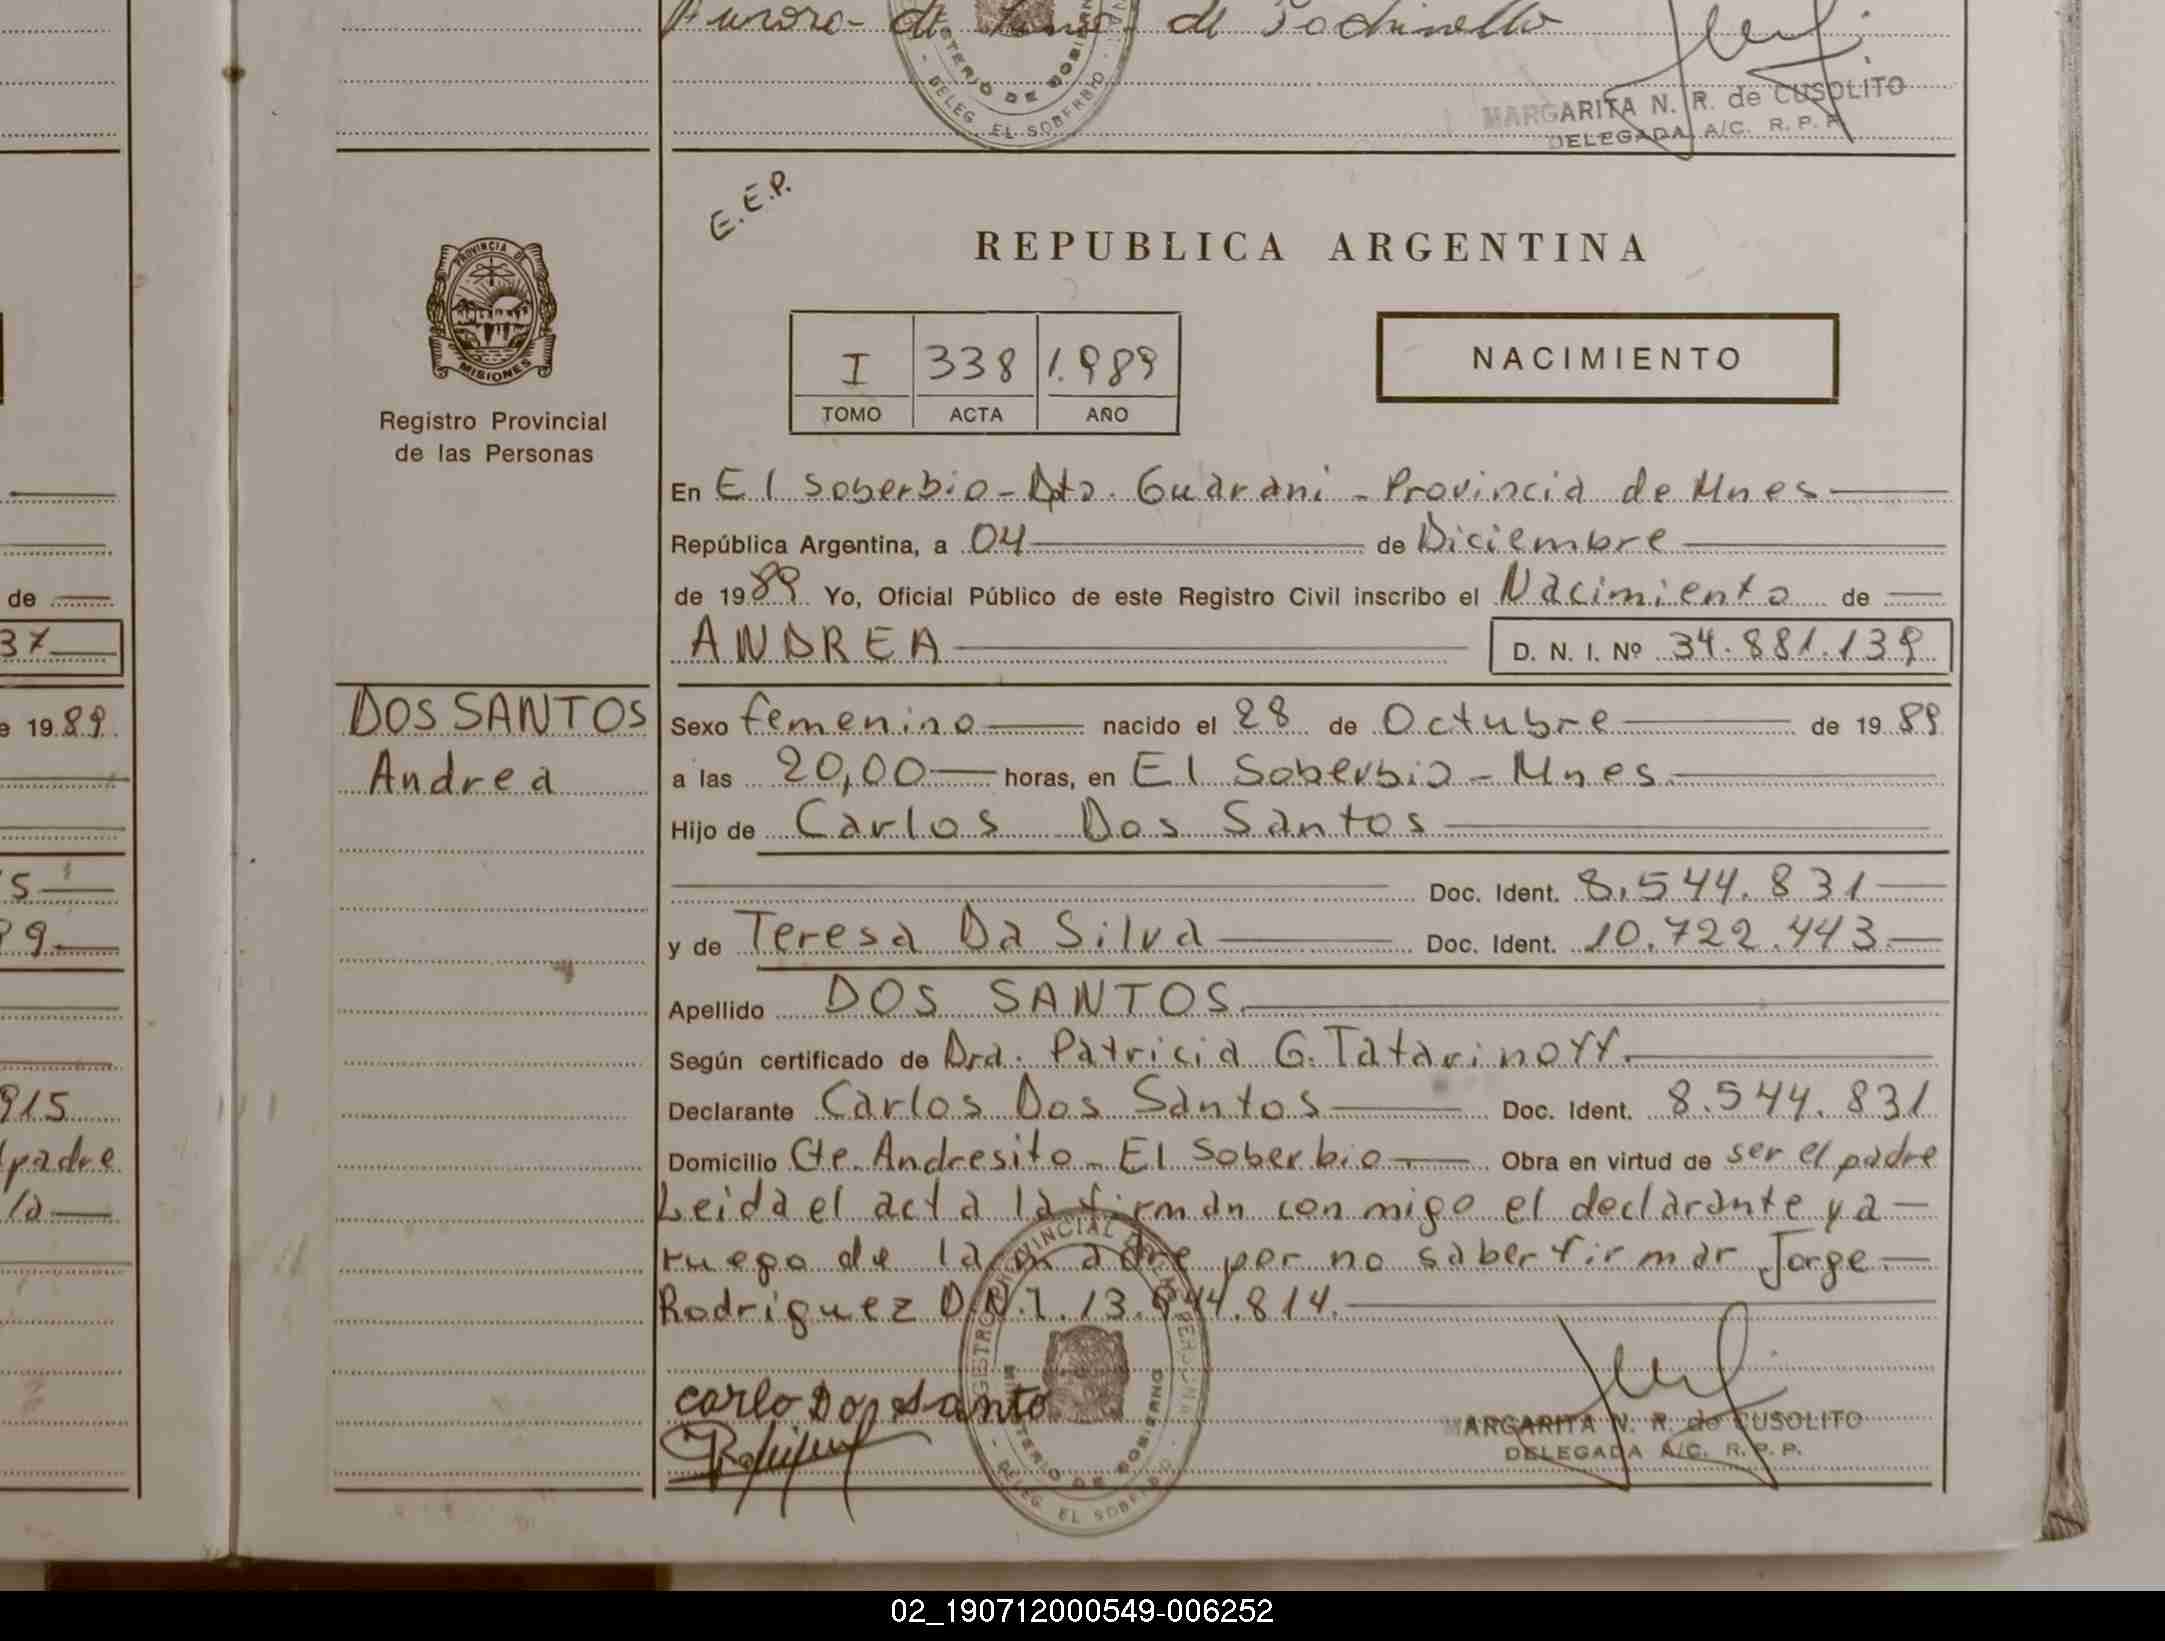 Aurora de de
STERIO DE GOBIERNO
DELEG. EL SOBERBIO
MARGARITA N. R. de CUSOLITO
DELEGADA A/C. R. P. P.
E.E.P.
REPUBLICA ARGENTINA
PROVINCIA DE
MISIONES
Registro Provincial
de las Personas
I 338 1.989
TOMO ACTA AÑO
NACIMIENTO
En El Soberbio - Dto. Guarani - Provincia de Mnes
República Argentina, a 04 de Diciembre
de 1989 Yo, Oficial Público de este Registro Civil inscribo el Nacimiento de
ANDREA D. N. I. Nº 34.881.139
DOS SANTOS
Andrea
Sexo femenino nacido el 28 de Octubre de 1989
a las 20,00 horas, en El Soberbio - Mnes
Hijo de Carlos Dos Santos
Doc. Ident. 8.544.831
y de Teresa Da Silva Doc. Ident. 10.722.443
Apellido DOS SANTOS
Según certificado de Dra. Patricia G. Tatarinoff.
Declarante Carlos Dos Santos Doc. Ident. 8.544.831
Domicilio Cte. Andresito - El Soberbio Obra en virtud de ser el padre
Leida el acta la firman con migo el declarante y a
ruego de la madre por no saber firmar Jorge
Rodriguez D.N.I. 13.   .814.
carlo Dos santo
MARGARITA N. R. de CUSOLITO
DELEGADA A/C. R. P. P.
REGISTRO PROVINCIAL DE LAS PERSONAS
MINISTERIO DE GOBIERNO
DELEG. EL SOBERBIO
de
37
e 1989
5
99
915
padre
la
02_190712000549-006252